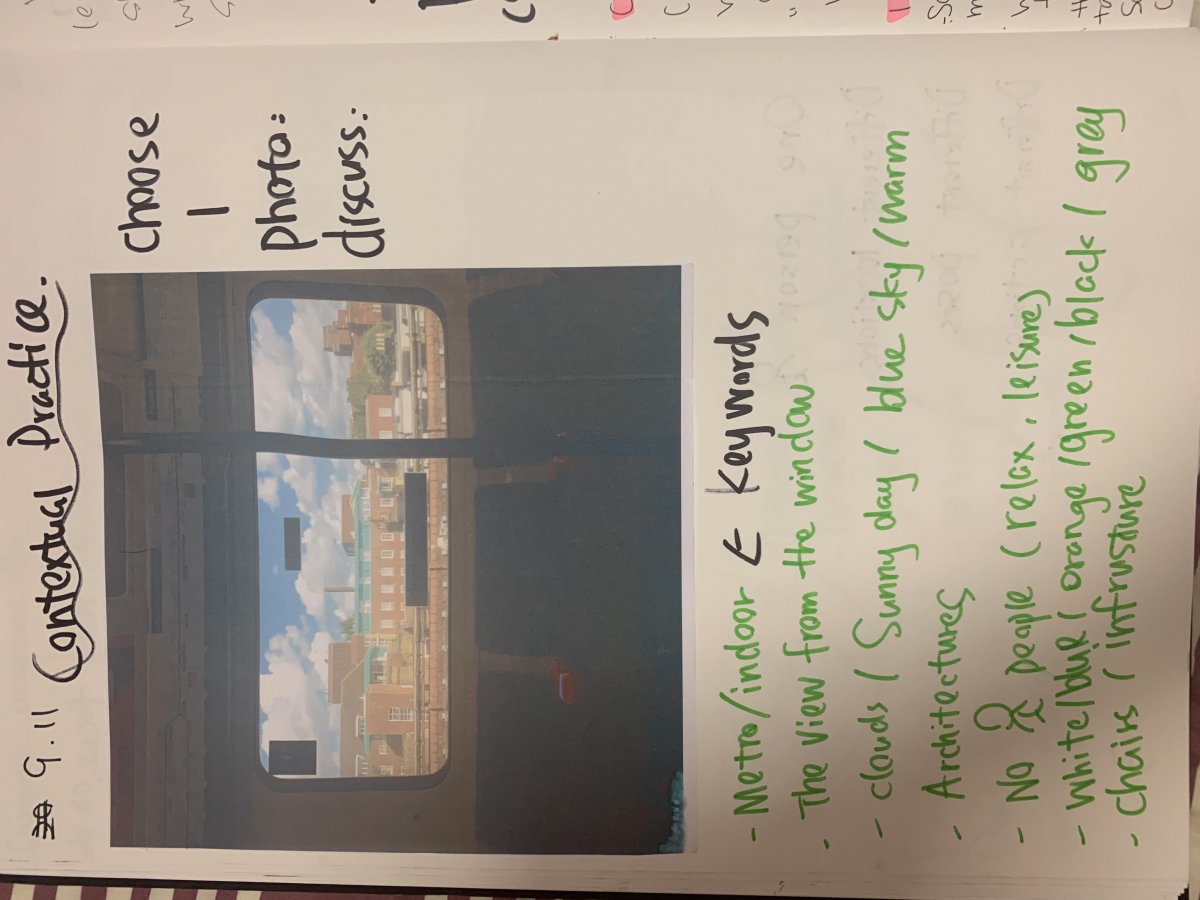 9.11 Contextual Practice.
choose
1
photo:
discuss:
← keywords
- Metro/indoor
- The view from the window
- clouds / Sunny day / blue sky / warm
- Architectures
- No people (relax, leisure)
- white/blue/orange/green/black/grey
- chairs / infrusture